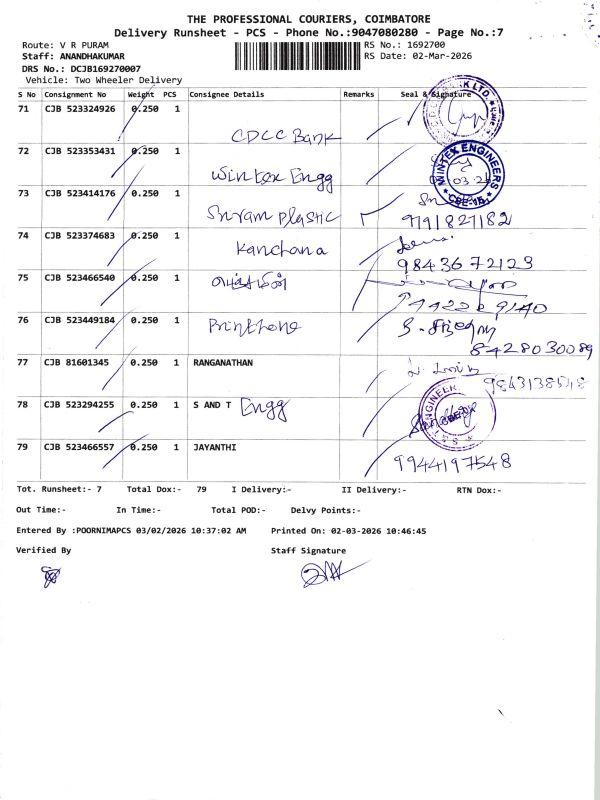 THE PROFESSIONAL COURIERS, COIMBATORE
Delivery Runsheet - PCS - Phone No.:9047080280 - Page No.:7
Route: V R PURAM
RS No.: 1692700
Staff: ANANDHAKUMAR
RS Date: 02-Mar-2026
DRS No.: DCJB169270007
Vehicle: Two Wheeler Delivery
S No Consignment No Weight PCS Consignee Details Remarks Seal & Signature
71 CJB 523324926 0.250 1
CDCC Bank
72 CJB 523353431 0.250 1
Wintex Engg
WINTEX ENGINEERS
73 CJB 523414176 0.250 1
Sriram plastic
9791827182
74 CJB 523374683 0.250 1
Kanchana
9843672123
75 CJB 523466540 0.250 1
76 CJB 523449184 0.250 1
Printhone
8428030089
77 CJB 81601345 0.250 1 RANGANATHAN
78 CJB 523294255 0.250 1 S AND T Engg
79 CJB 523466557 0.250 1 JAYANTHI
9944197548
Tot. Runsheet:- 7 Total Dox:- 79 I Delivery:- II Delivery:- RTN Dox:-
Out Time:- In Time:- Total POD:- Delvy Points:-
Entered By :POORNIMAPCS 03/02/2026 10:37:02 AM Printed On: 02-03-2026 10:46:45
Verified By Staff Signature